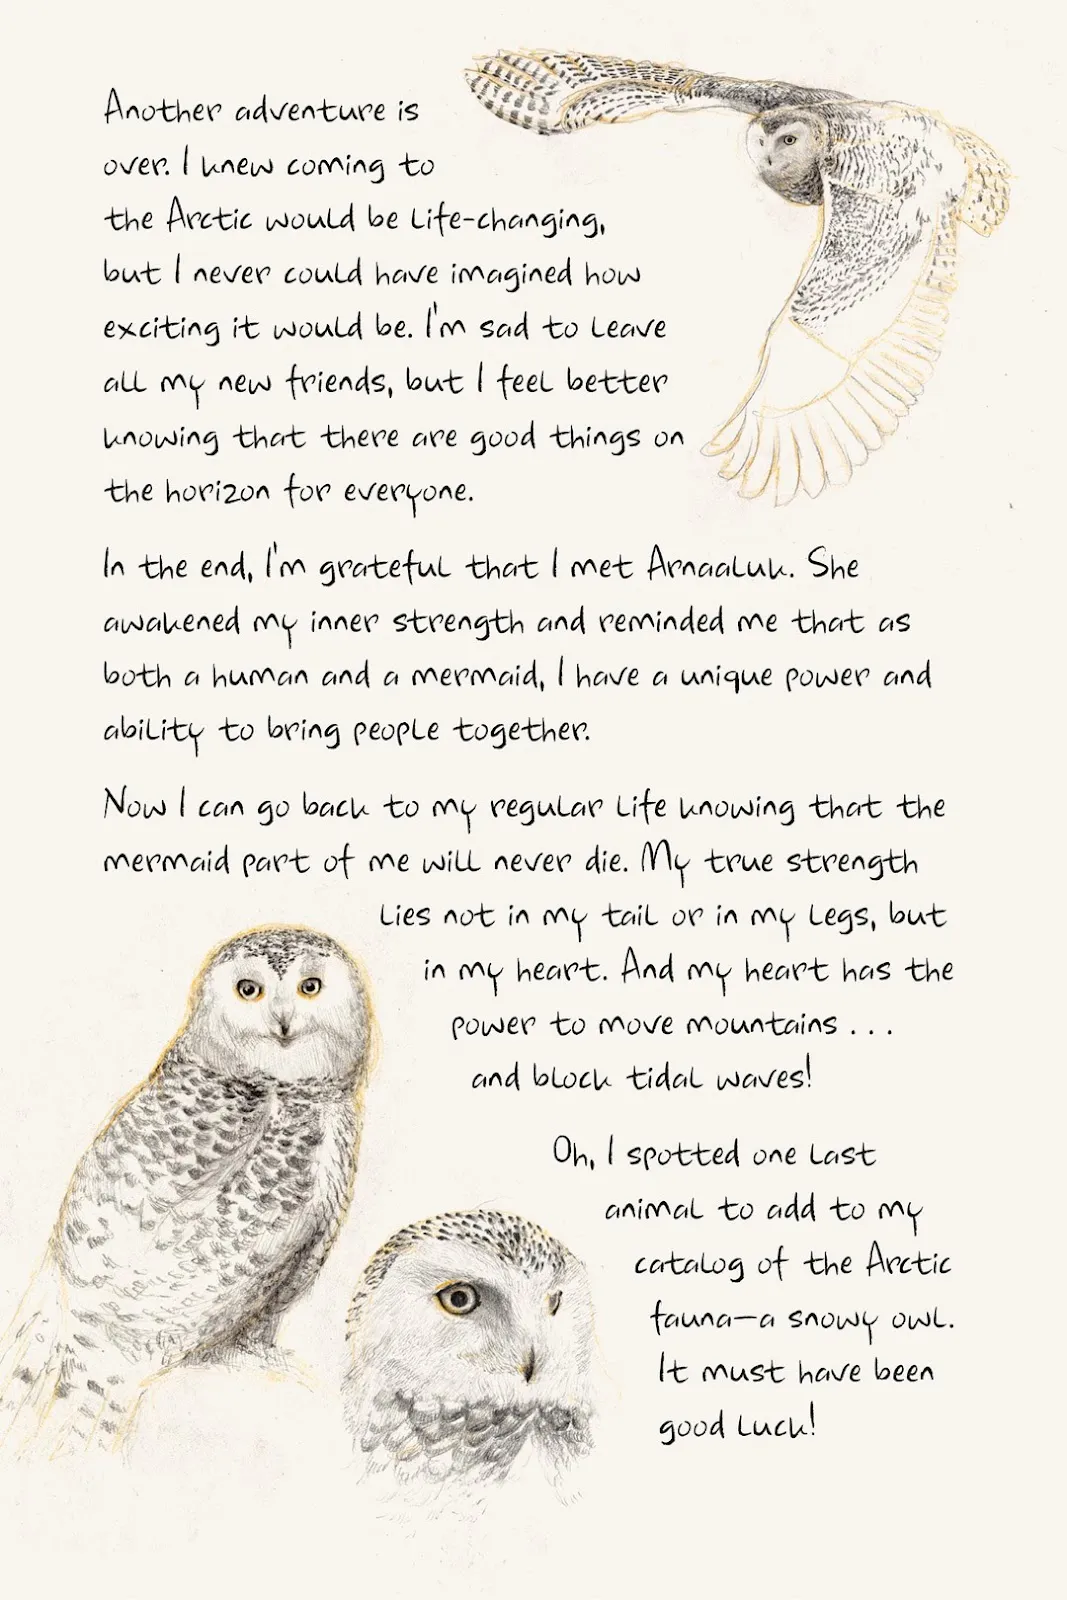 Another adventure is
over. I knew coming to
the Arctic would be life-changing,
but I never could have imagined how
exciting it would be. I'm sad to leave
all my new friends, but I feel better
knowing that there are good things on
the horizon for everyone.
In the end, I'm grateful that I met Arnaaluk. She
awakened my inner strength and reminded me that as
both a human and a mermaid, I have a unique power and
ability to bring people together.
Now I can go back to my regular life knowing that the
mermaid part of me will never die. My true strength
lies not in my tail or in my legs, but
in my heart. And my heart has the
power to move mountains . . .
and block tidal waves!
Oh, I spotted one last
animal to add to my
catalog of the Arctic
fauna—a snowy owl.
It must have been
good luck!